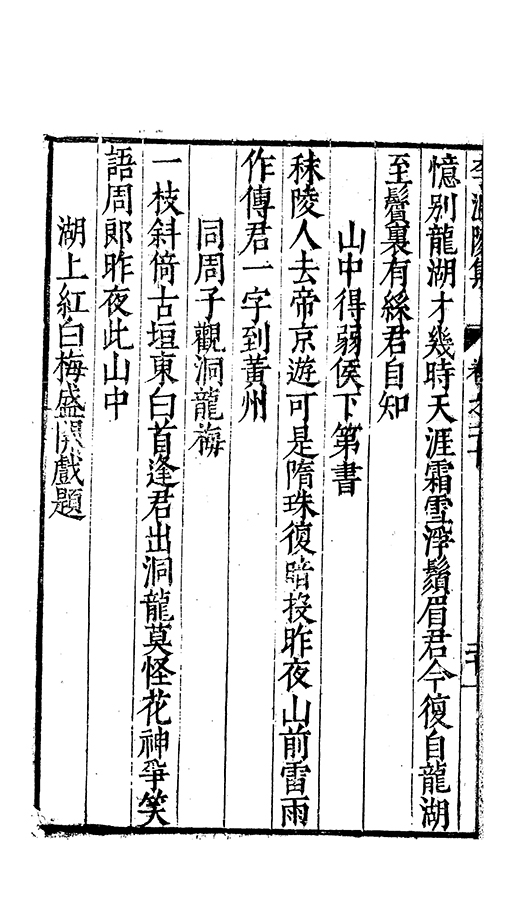 憶别龍湖才幾時天涯霜雪淨鬚眉君今復自龍湖
至鬢裏有絲君自知
山中得弱侯下第書
秣陵人去帝京遊可是隋珠復暗投昨夜山前雷雨
作傳君一字到黃州
同周子觀洞龍梅
一枝斜倚古垣東白首逢君出洞龍莫怪花神爭笑
語周郎昨夜此山中
湖上紅白梅盛開戲題